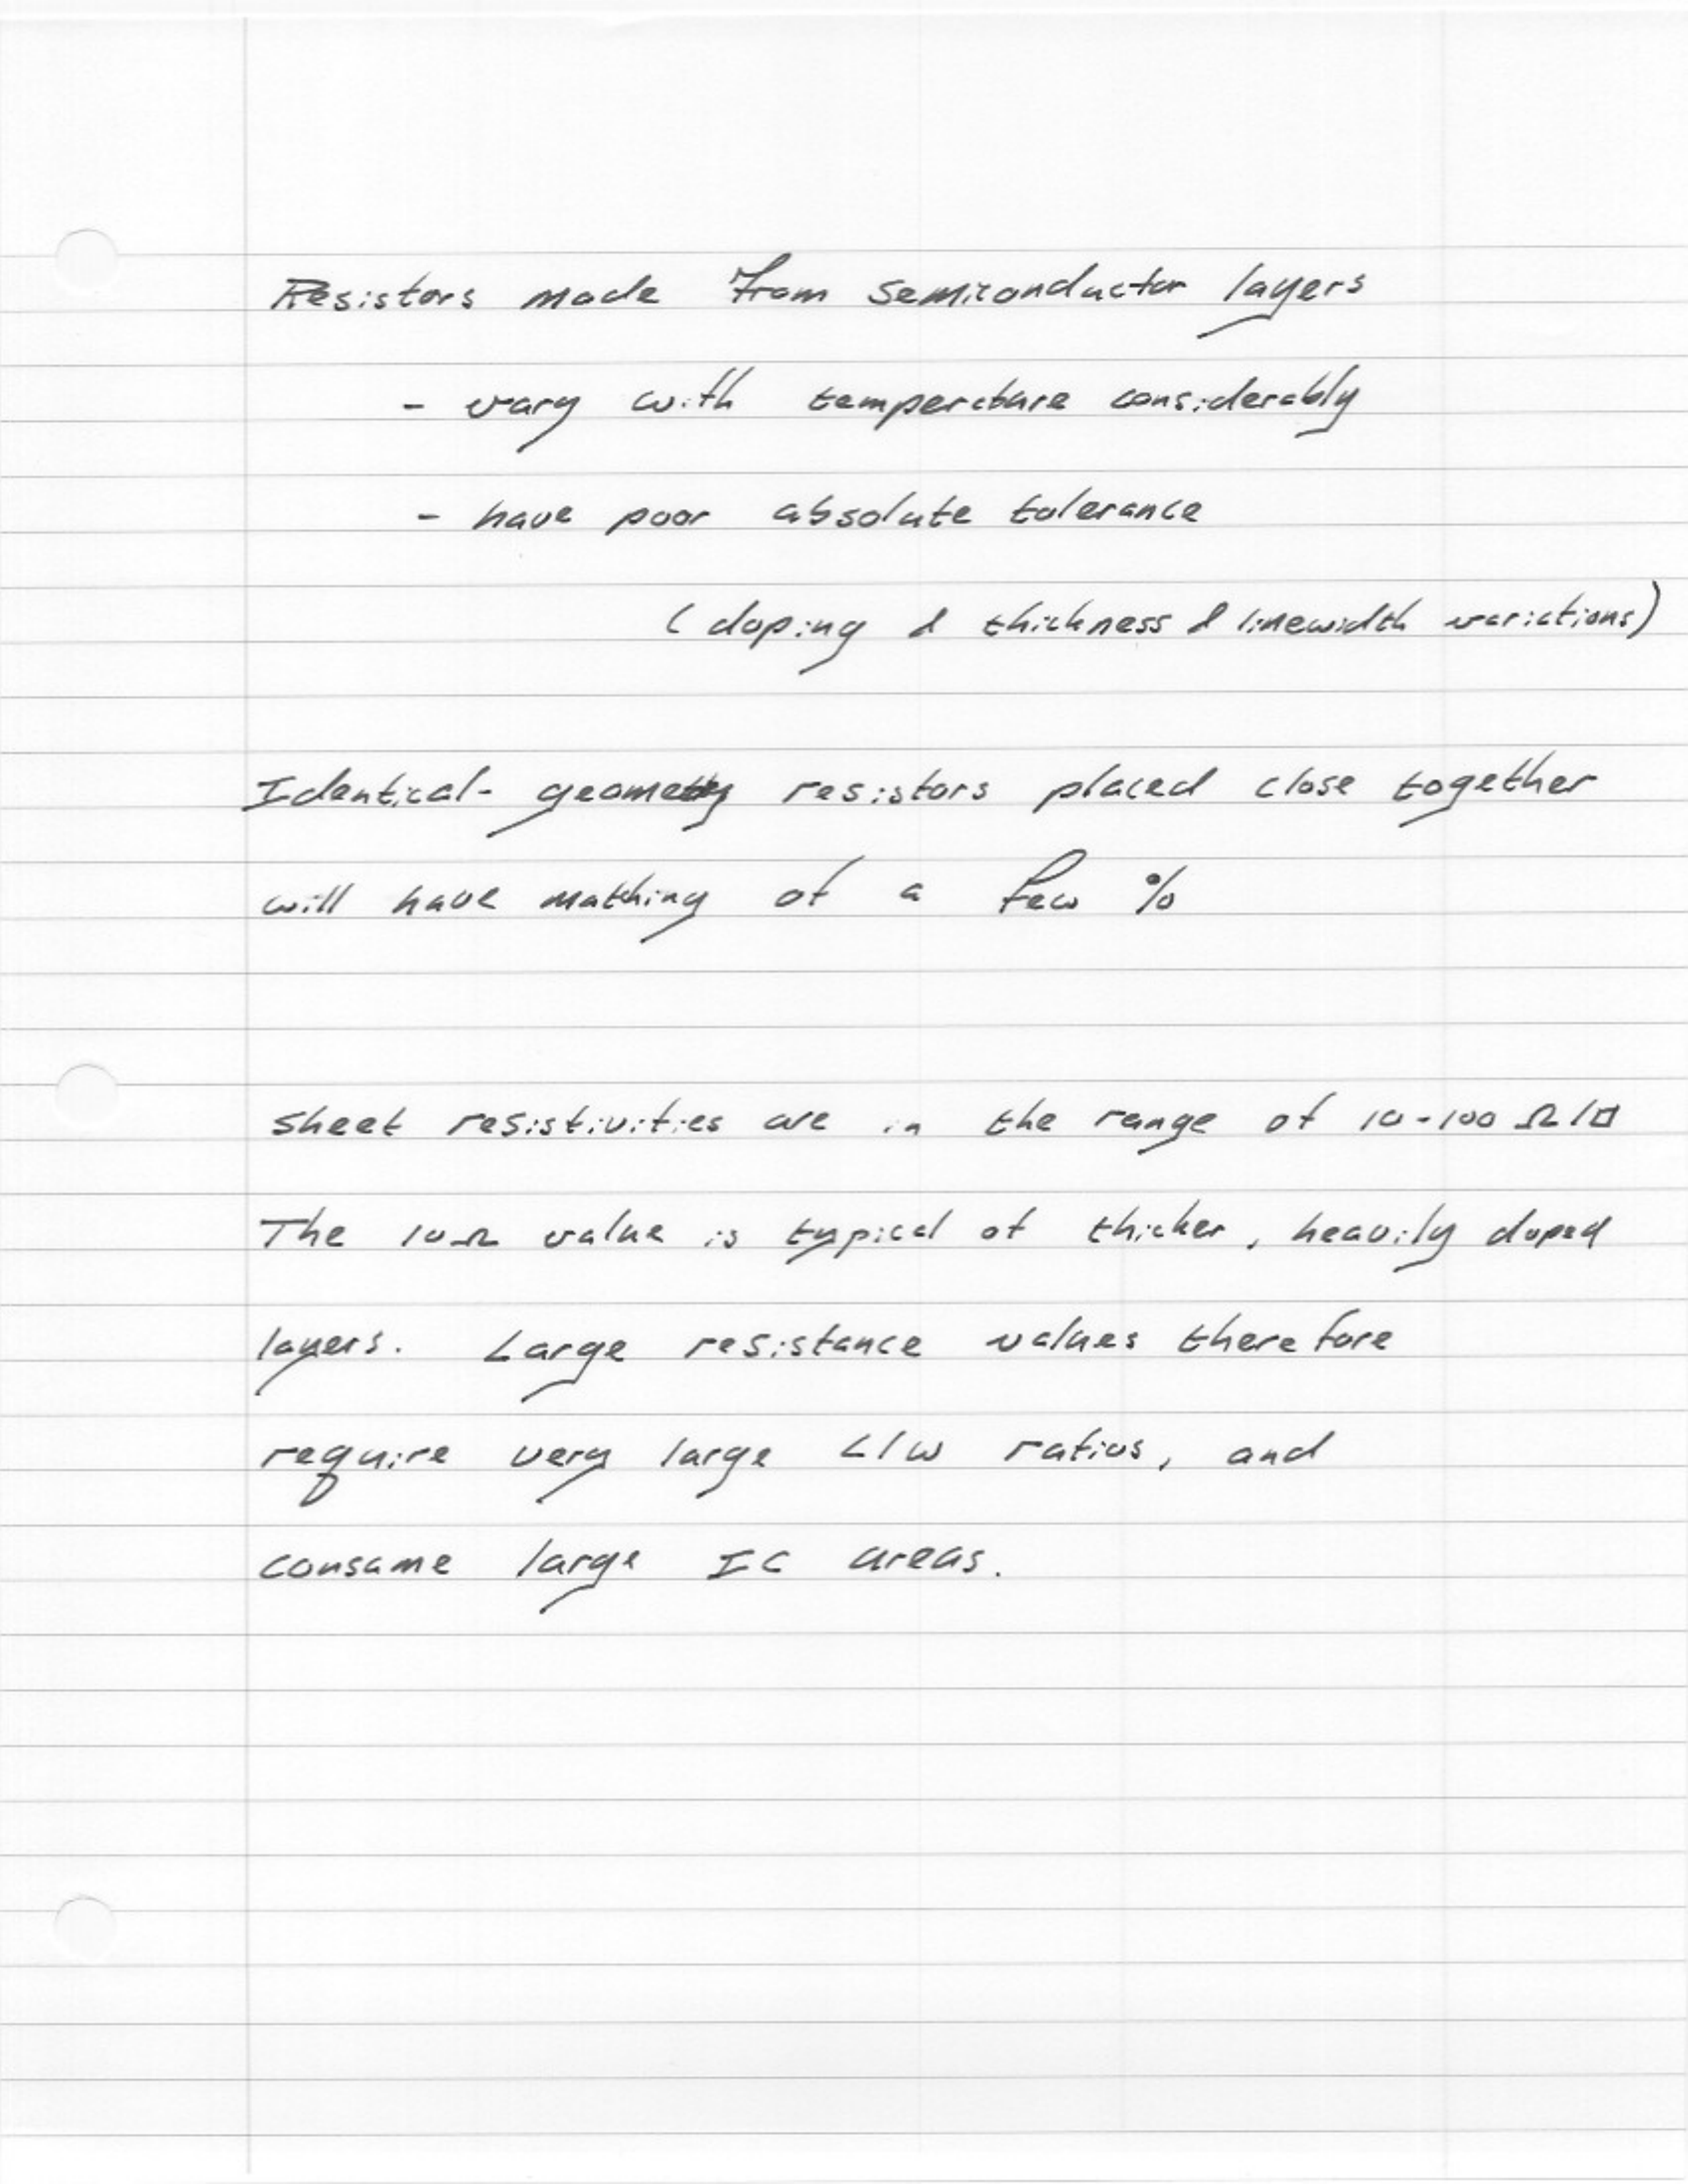 Resistors made from semiconductor layers
- vary with temperature considerably
- have poor absolute tolerance
(doping & thickness & linewidth variations)
Identical-geometry resistors placed close together
will have matching of a few %
sheet resistivities are in the range of 10-100 Ω/□
The 10Ω value is typical of thicker, heavily doped
layers. Large resistance values therefore
require very large L/W ratios, and
consume large IC areas.